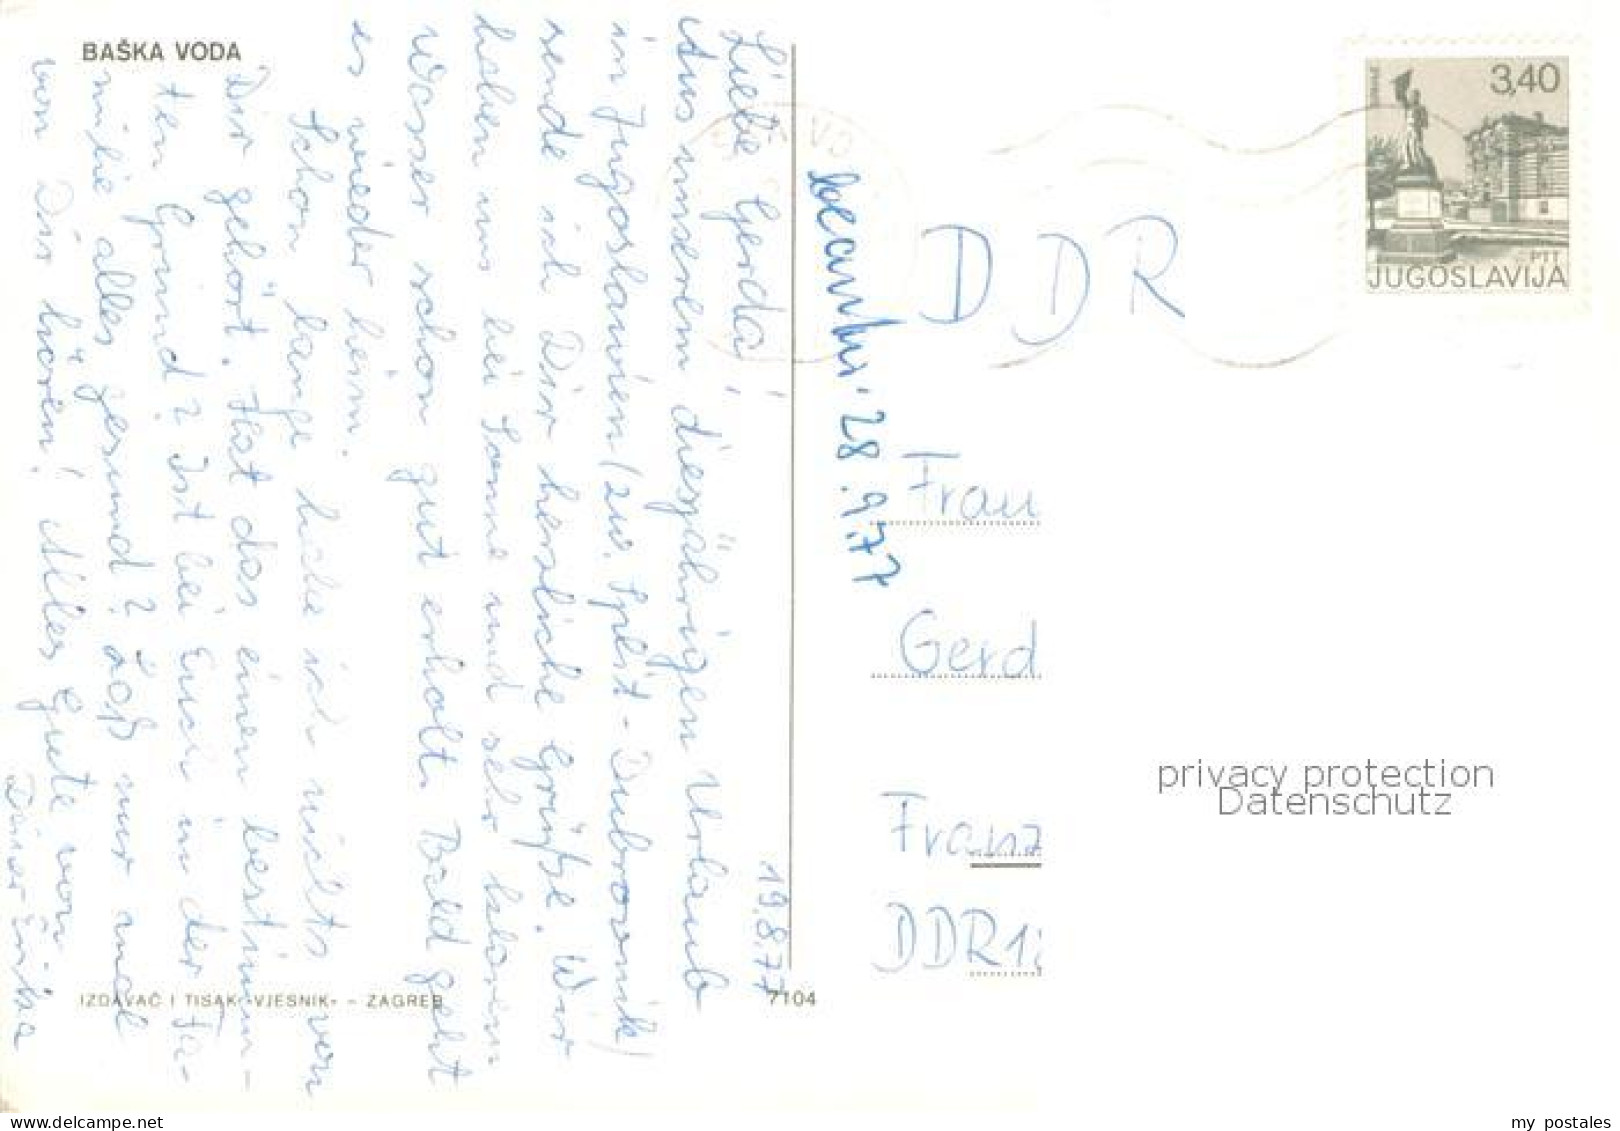 BAŠKA VODA
19.8.77
Liebe Gerda!
Aus unserem diesjährigen Urlaub
in Jugoslawien (zw. Split - Dubrovnik)
sende ich Dir herzliche Grüße. Wir
haben uns bei Sonne und sehr klarem
Wasser schon gut erholt. Bald geht
es wieder heim.
Schon lange habe ich nichts von
Dir gehört. Hat das einen bestimm-
ten Grund? Ist bei Euch in der Fa-
milie alles gesund? Laß nur mal
von Dir hören! Alles Gute von
Deiner Erika
IZDAVAČ I TISAK »VJESNIK« - ZAGREB
7104
beantw. 28.9.77
3,40
PTT
JUGOSLAVIJA
DDR
Frau
Gerd
Franz
DDR 1
privacy protection
Datenschutz
my postales